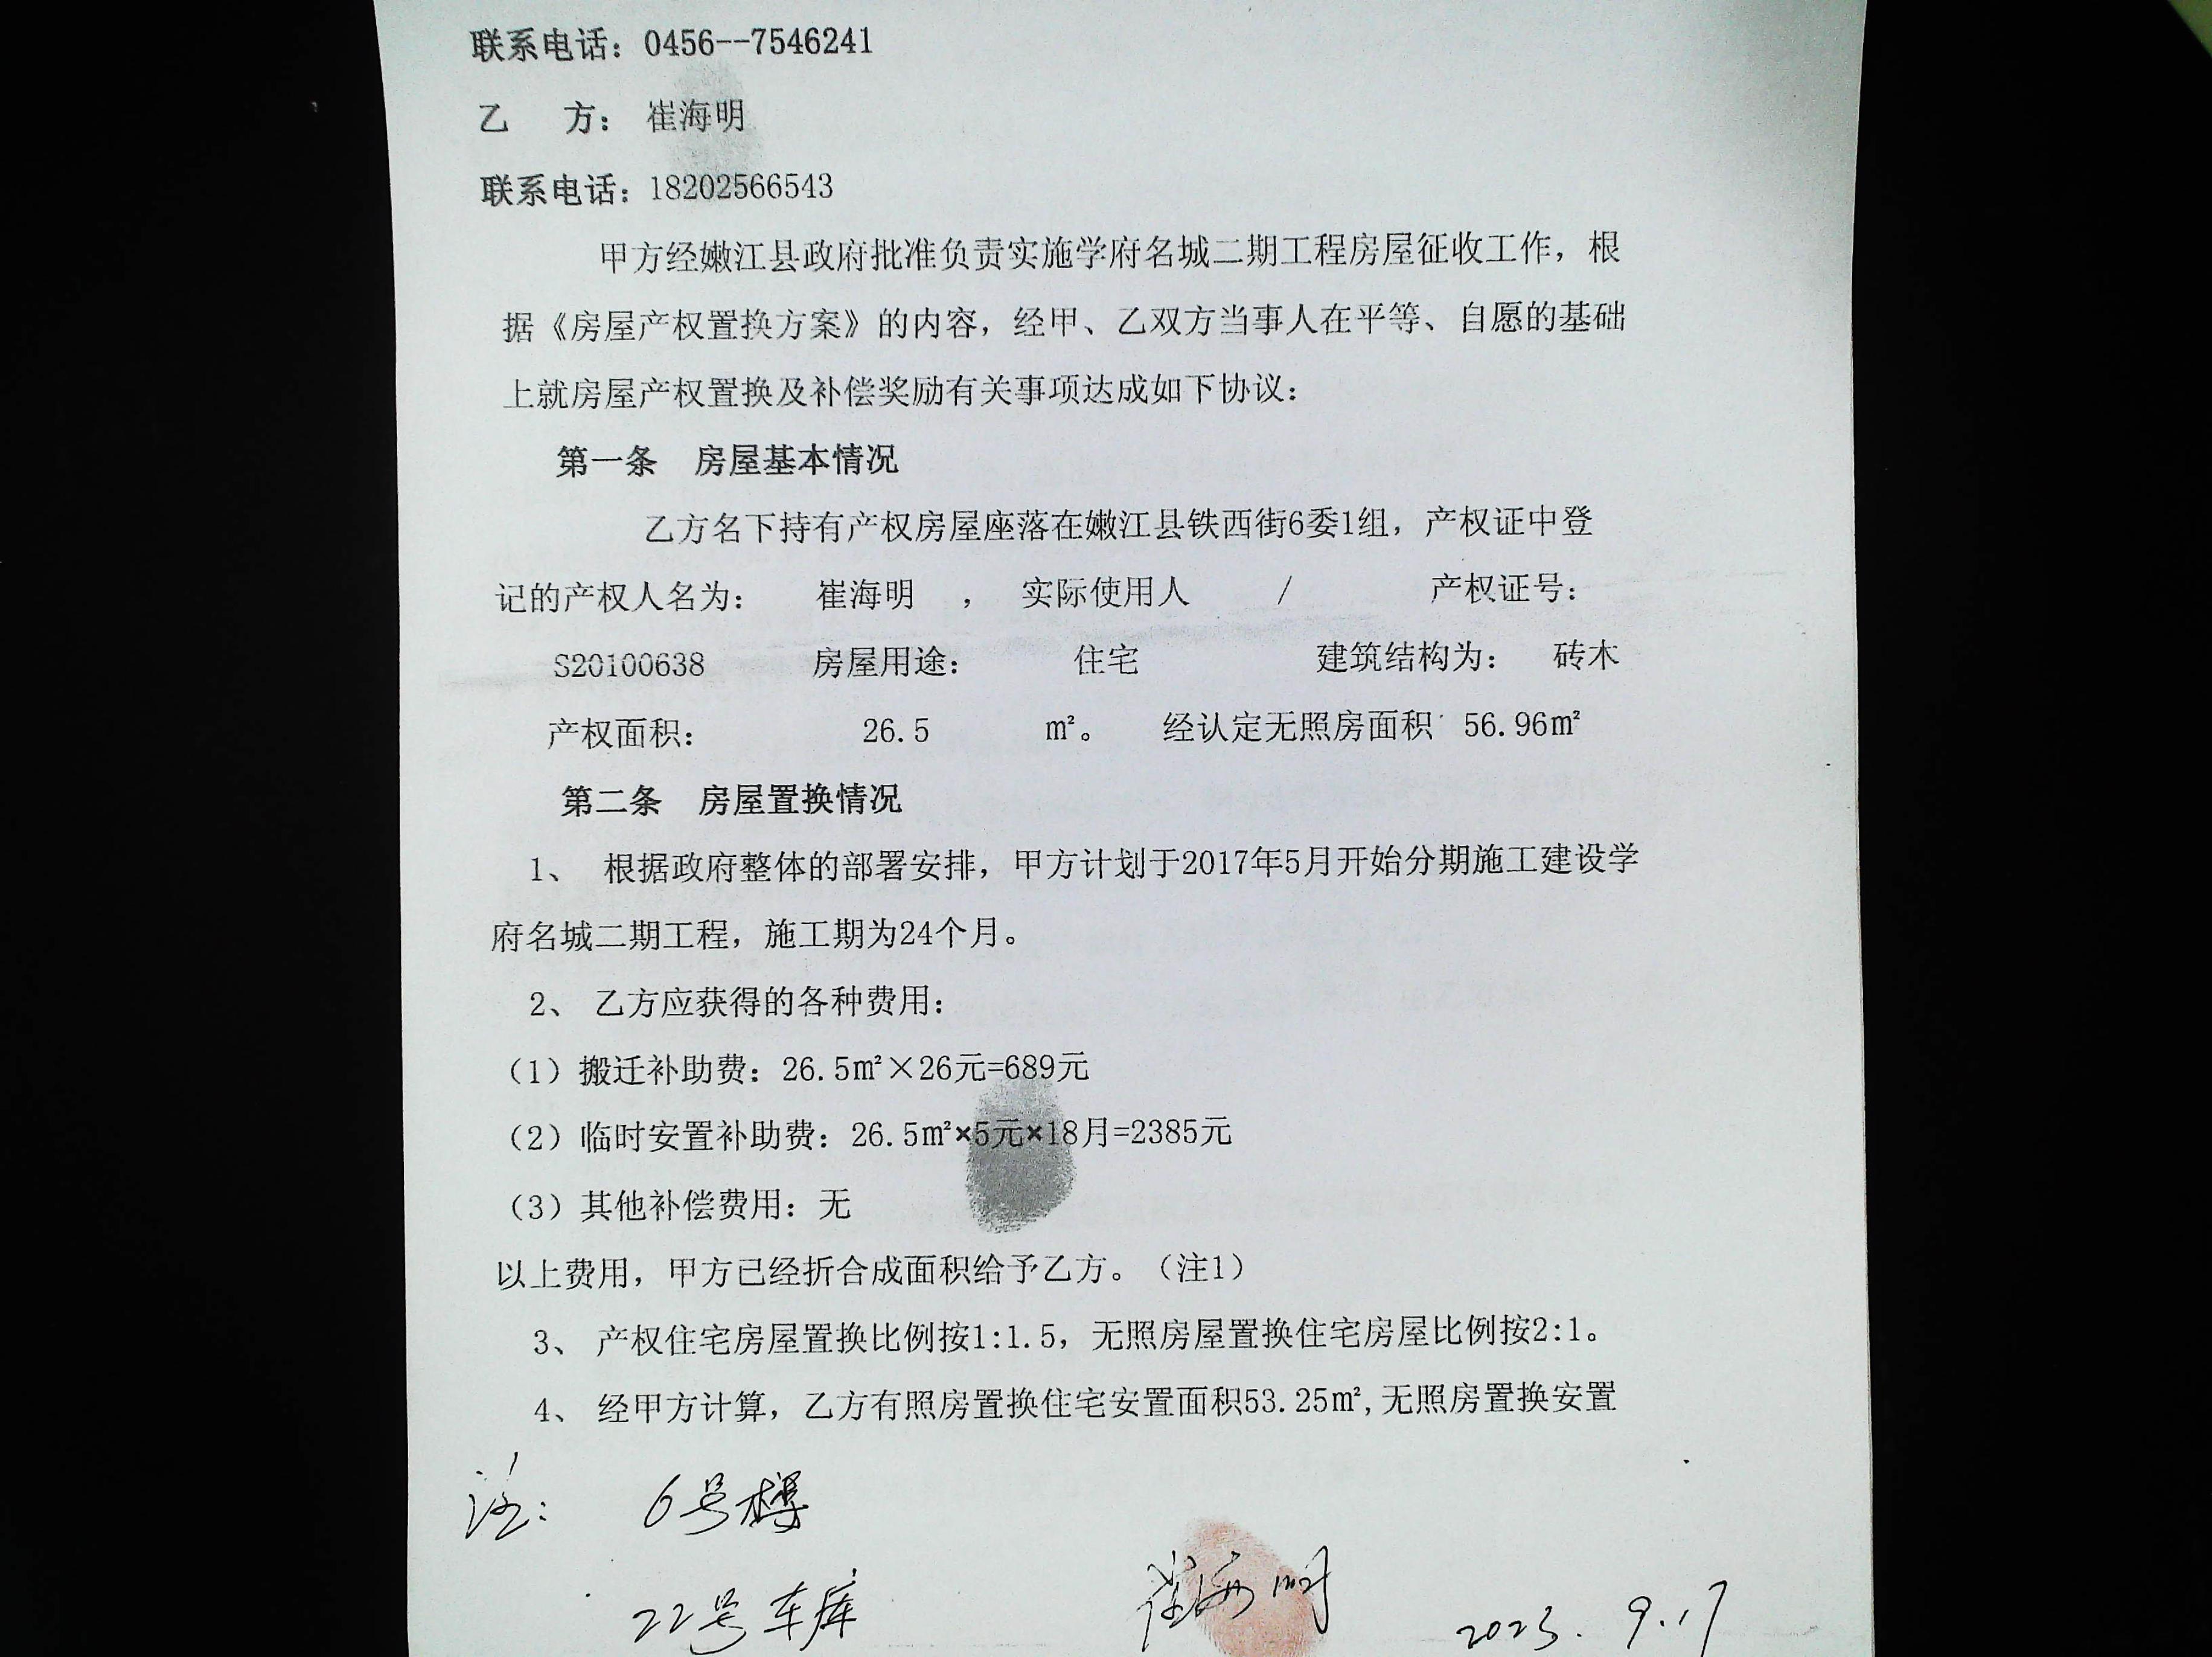 联系电话：0456--7546241
乙 方： 崔海明
联系电话：18202566543
甲方经嫩江县政府批准负责实施学府名城二期工程房屋征收工作，根
据《房屋产权置换方案》的内容，经甲、乙双方当事人在平等、自愿的基础
上就房屋产权置换及补偿奖励有关事项达成如下协议：
第一条 房屋基本情况
乙方名下持有产权房屋座落在嫩江县铁西街6委1组，产权证中登
记的产权人名为： 崔海明 ， 实际使用人 / 产权证号：
S20100638 房屋用途： 住宅 建筑结构为： 砖木
产权面积： 26.5 m²。 经认定无照房面积 56.96m²
第二条 房屋置换情况
1、 根据政府整体的部署安排，甲方计划于2017年5月开始分期施工建设学
府名城二期工程，施工期为24个月。
2、 乙方应获得的各种费用：
（1）搬迁补助费：26.5m²×26元=689元
（2）临时安置补助费：26.5m²×5元×18月=2385元
（3）其他补偿费用：无
以上费用，甲方已经折合成面积给予乙方。（注1）
3、 产权住宅房屋置换比例按1:1.5，无照房屋置换住宅房屋比例按2:1。
4、 经甲方计算，乙方有照房置换住宅安置面积53.25m²,无照房置换安置
注： 6号楼
22号车库 崔海明 2023.9.17